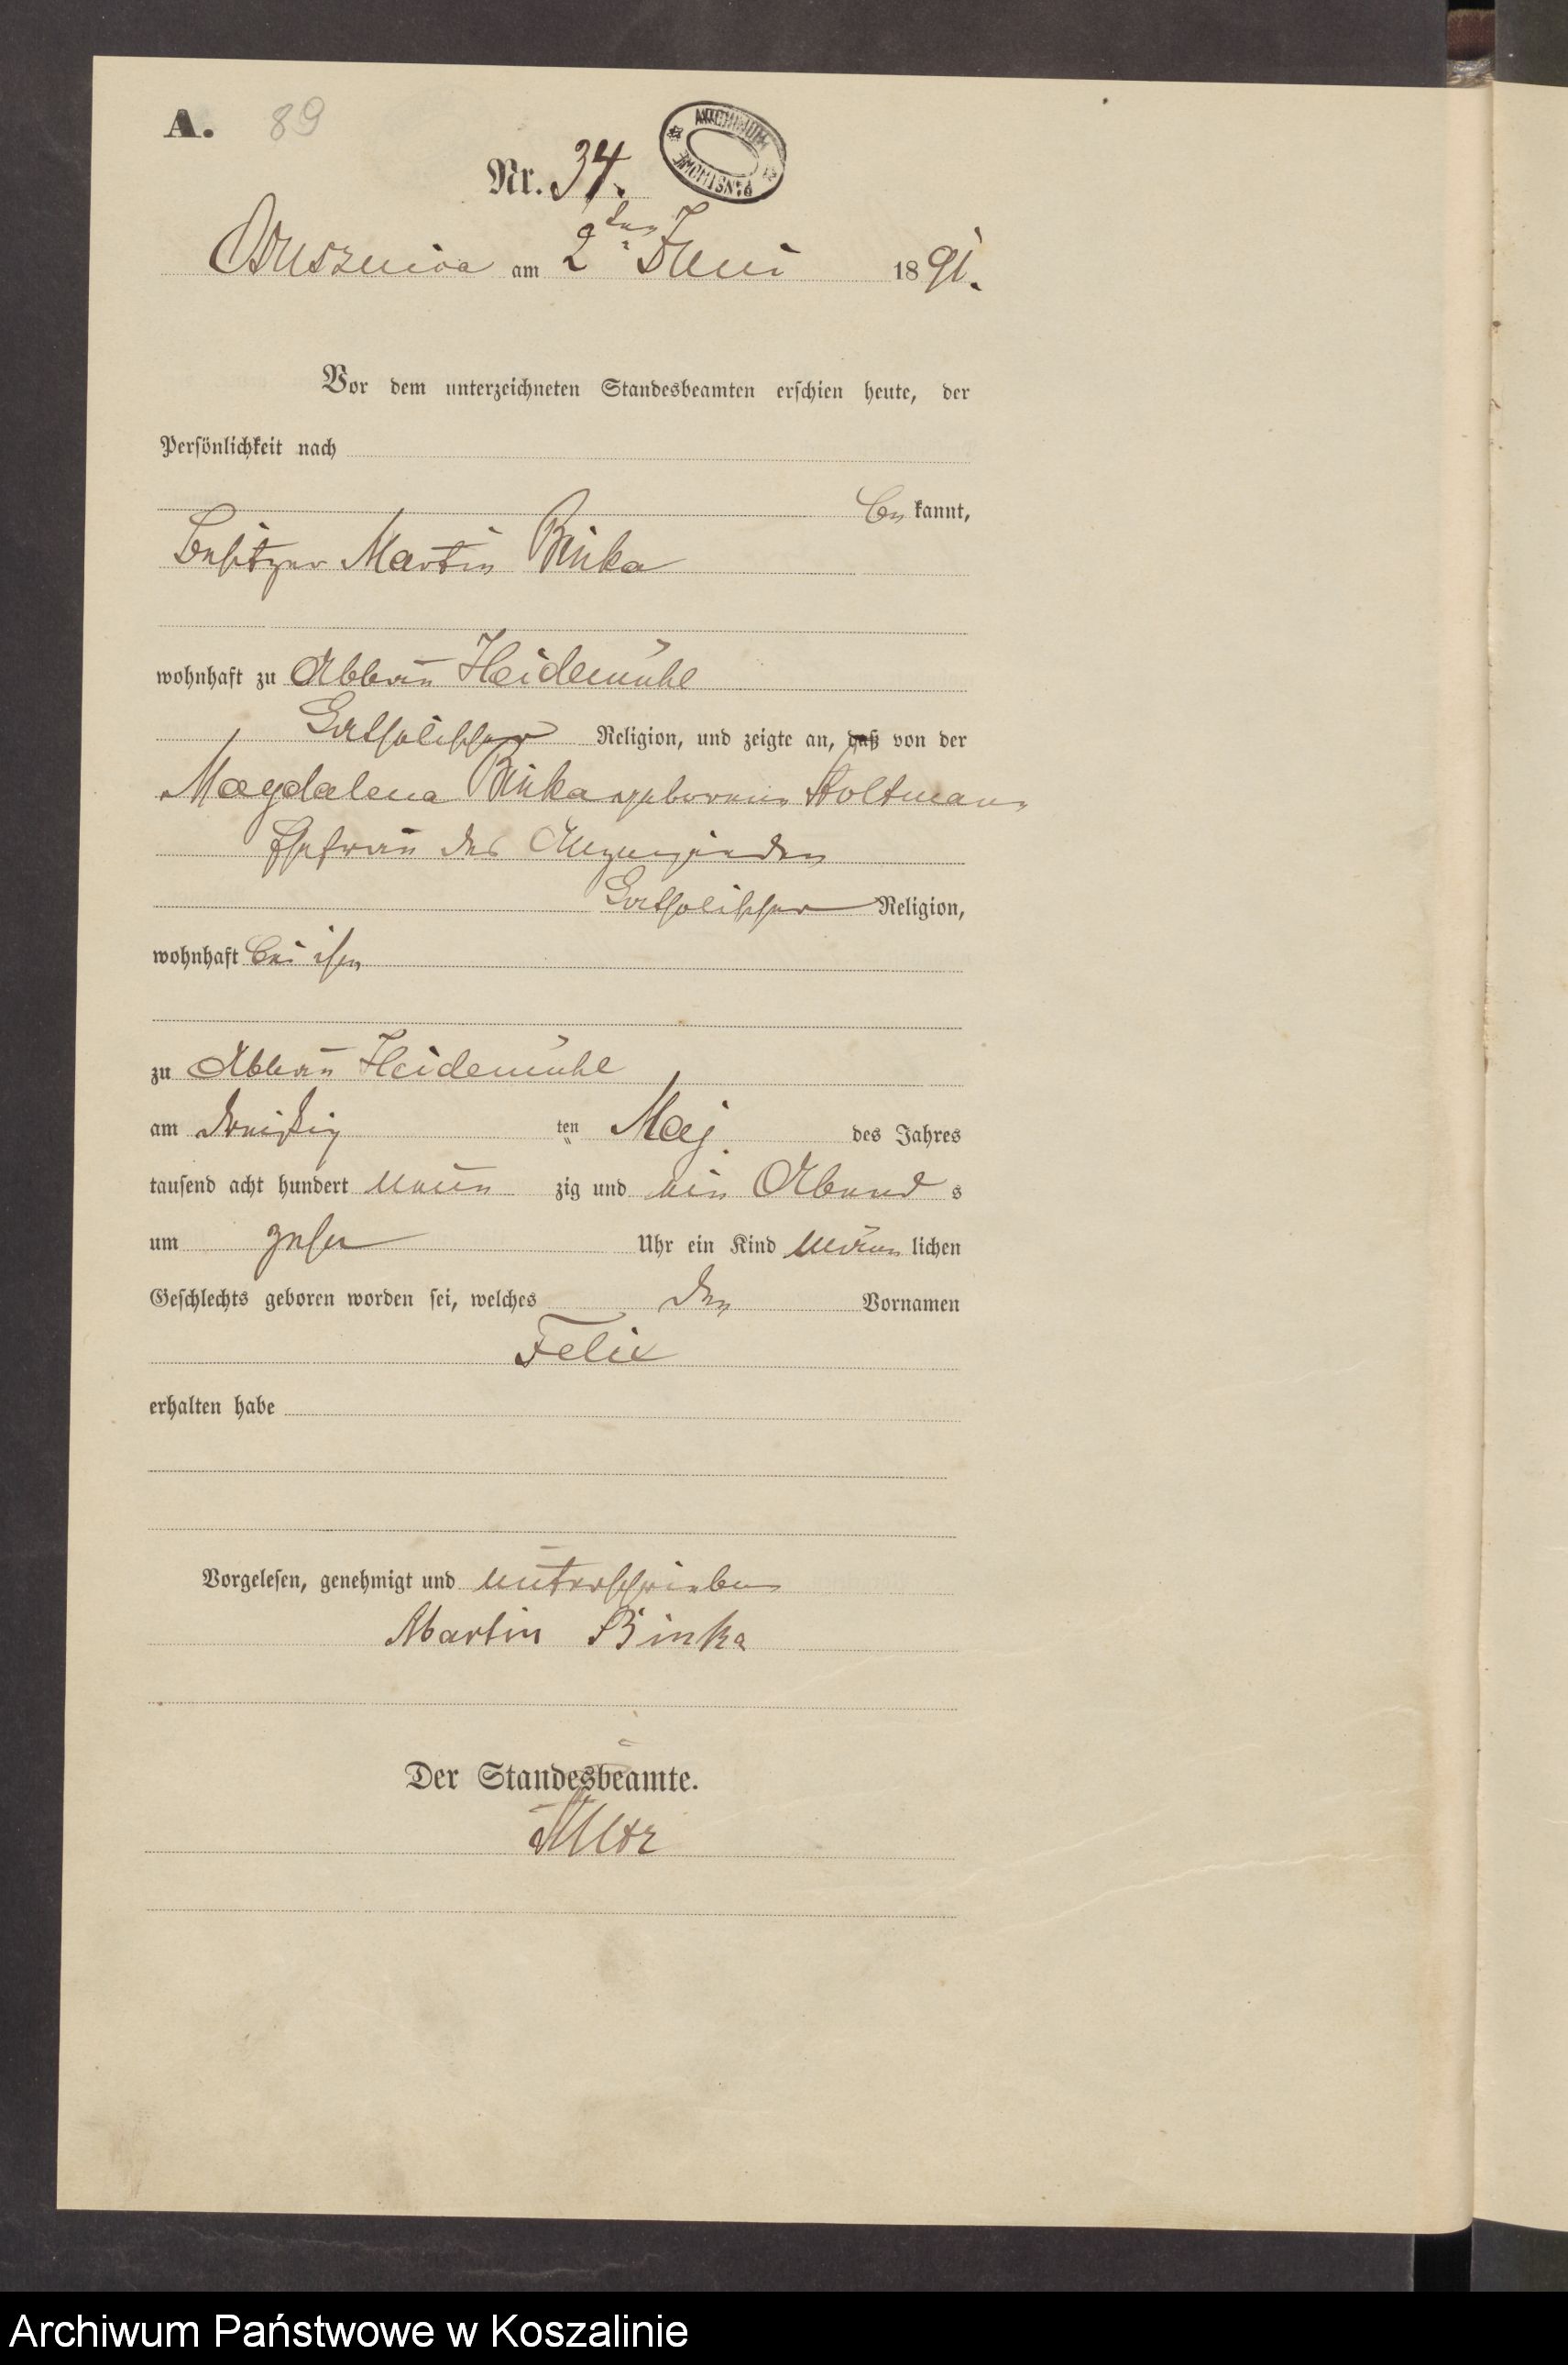 A. 89
Nr. 34.
ARCHIWUM PAŃSTWOWE
Oszusznica am 2ten Juni 1891.
Vor dem unterzeichneten Standesbeamten erschien heute, der
Persönlichkeit nach
be kannt,
Besitzer Martin Binka
wohnhaft zu Abbau Heidemühl
katholischer Religion, und zeigte an, daß von der
Magdalena Binka geborenen Stoltmann
Ehefrau des Anzeigenden
katholischer Religion,
wohnhaft bei ihm
zu Abbau Heidemühl
am dreißig ten Maj des Jahres
tausend acht hundert neun zig und ein Abend s
um zehn Uhr ein Kind männ lichen
Geschlechts geboren worden sei, welches den Vornamen
Felix
erhalten habe
Vorgelesen, genehmigt und unterschrieben
Martin Binka
Der Standesbeamte.
Archiwum Państwowe w Koszalinie